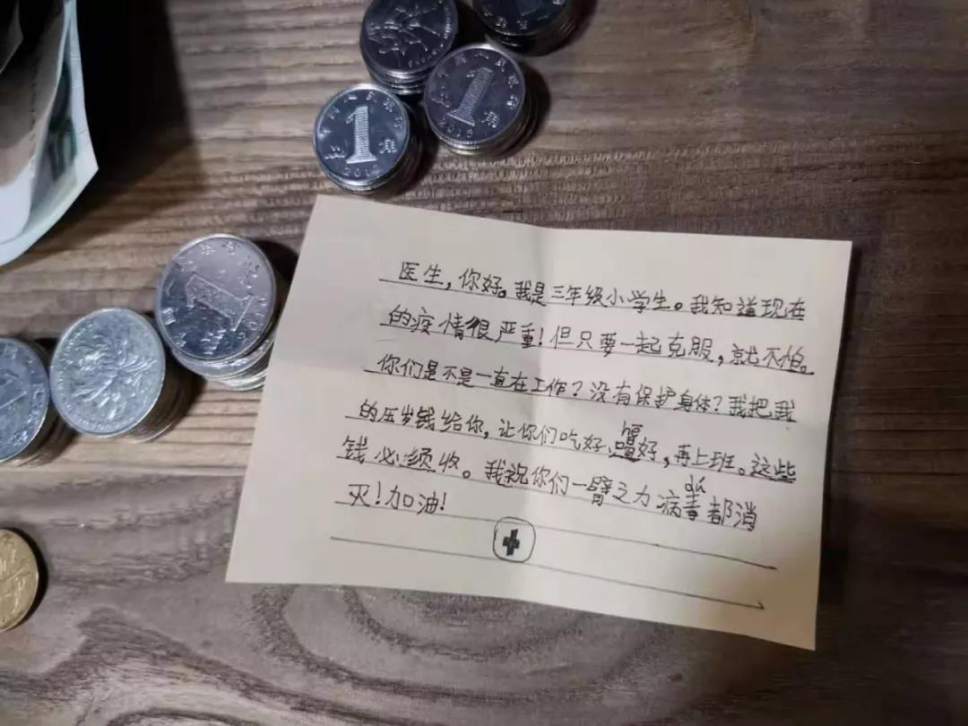 1角
1
1
医生，你好。我是三年级小学生。我知道现在
的疫情很严重！但只要一起克服，就不怕。
你们是不是一直在工作？没有保护身体？我把我
的压岁钱给你，让你们吃好，好，再上班。这些
钱必须收。我祝你们一臂之力病毒都消
灭！加油！